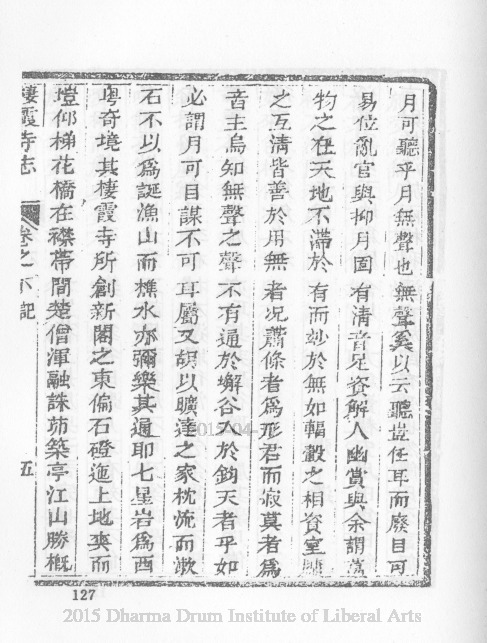 月可聽乎月無聲也無聲奚以云聽豈任耳而廢目可
易位亂官與抑月固有清音足資解人幽賞與余謂萬
物之在天地不滯於有而妙於無如輻轂之相資室牖
之互清皆善於用無者況蕭條者為形君而寂莫者為
音主烏知無聲之聲不有通於嶰谷大於鈞天者乎如
必謂月可目謀不可耳屬又胡以曠達之家枕流而漱
石不以為誕漁山而樵水亦彌樂其適耶七星岩為西
粵奇境其棲霞寺所創新閣之東偏石磴迤上地爽而
塏仰梯花橋在襟帶間楚僧渾融誅茆築亭江山勝概
棲霞寺志
卷之下記
五
127
2015-04-
2015 Dharma Drum Institute of Liberal Arts